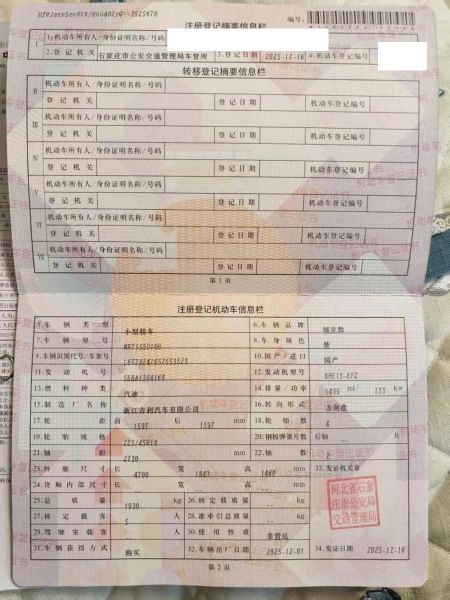 注册登记摘要信息栏
编号:
I
1.机动车所有人/身份证明名称/号码
2.登记机关 石家庄市公安交通管理局车管所 3.登记日期 2025-12-16
转移登记摘要信息栏
II 机动车所有人/身份证明名称/号码
登记机关 登记日期 机动车登记编号
III 机动车所有人/身份证明名称/号码
登记机关 登记日期 机动车登记编号
IV 机动车所有人/身份证明名称/号码
登记机关 登记日期 机动车登记编号
V 机动车所有人/身份证明名称/号码
登记机关 登记日期 机动车登记编号
VI 机动车所有人/身份证明名称/号码
登记机关 登记日期 机动车登记编号
VII 机动车所有人/身份证明名称/号码
登记机关 登记日期 机动车登记编号
第1页
注册登记机动车信息栏
5.车辆类型 小型轿车 6.车辆品牌 领克牌
7.车辆型号 8.车身颜色 紫
9.车辆识别代号/车架号 10.国产/进口 国产
11.发动机号 12.发动机型号 BHE15-EFZ
13.燃料种类 汽油 14.排量/功率 1499 ml/ 133 kw
15.制造厂名称 浙江吉利汽车有限公司 16.转向形式 方向盘
17.轮距 前 1597 后 1597 mm 18.轮胎数 4
19.轮胎规格 225/45R18 20.钢板弹簧片数 后轴 片
21.轴距 2730 mm 22.轴数 2
23.外廓尺寸 长 4706 宽 1843 高 1460 mm 33.发证机关章
24.货厢内部尺寸 长 宽 高 mm
25.总质量 1930 kg 26.核定载质量 kg
27.核定载客 5 人 28.准牵引总质量 kg
29.驾驶室载客 人 30.使用性质 非营运
31.车辆获得方式 购买 32.车辆出厂日期 2025-12-01 34.发证日期 2025-12-16
河北省石家
庄市公安局
交通管理局
第2页